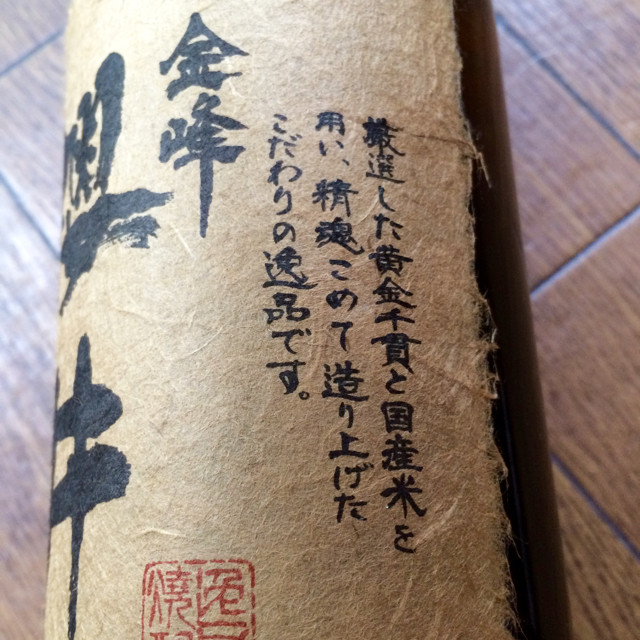 厳選した黄金千貫と国産米を
用い、精魂こめて造り上げた
こだわりの逸品です。
金峰